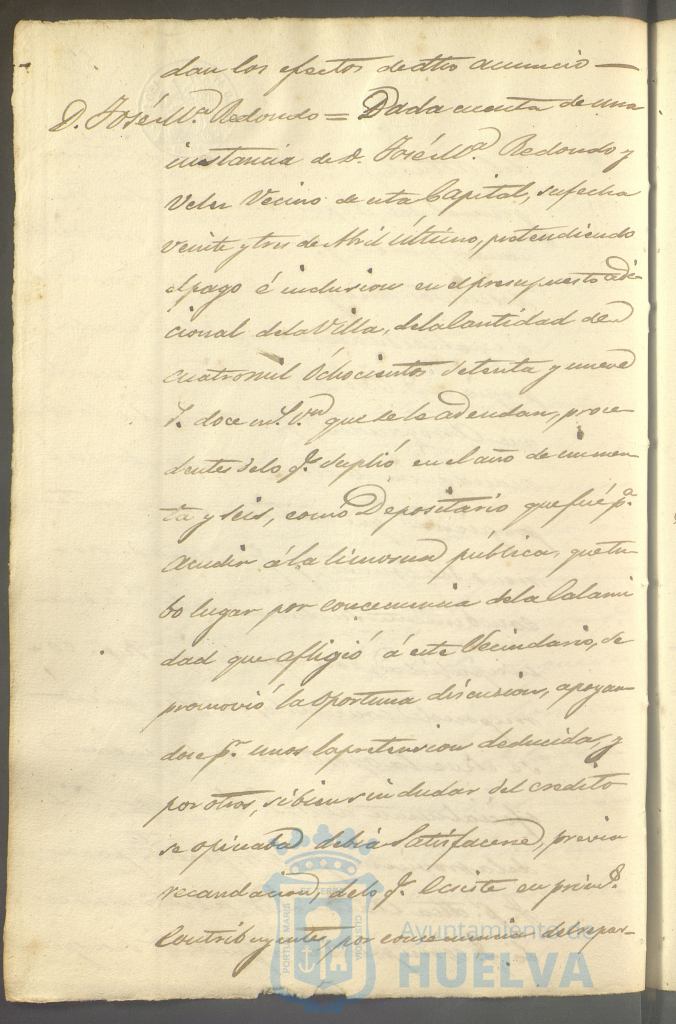 dan los efectos de dho anuncio —
D. José Mª Redondo = Dada cuenta de una
instancia de D. José Mª Redondo y
Velez Vecino de esta Capital, su fecha
veinte y tres de Abril último, pretendiendo
el pago é inclusion en el presupuesto adi-
cional de la Villa, de la Cantidad de
cuatro mil Ochocientos setenta y nueve
r. doce ms. Vn que se le adeudan, proce-
dentes de lo q.e suplió en el año de cincuen-
ta y seis, como Depositario que fué p.a
Acudir á la limosna pública, que tu-
bo lugar por consecuencia de la Calami
dad que afligió á este Vecindario, se
promovió la oportuna discusion, apoyan-
dose p.r unos la pretension deducida, y
por otros, si bien sin dudar del credito
se opinaba debia Satisfacerse, previa
recaudacion, de lo q.e ecsiste en prim.s
Contribuyentes, por consecuencia del repar-
Ayuntamiento de
HUELVA
PORTUS MARIS